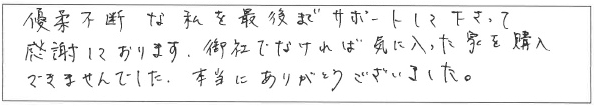 優柔不断な私を最後までサポートして下さって
感謝しております。御社でなければ気に入った家を購入
できませんでした。本当にありがとうございました。